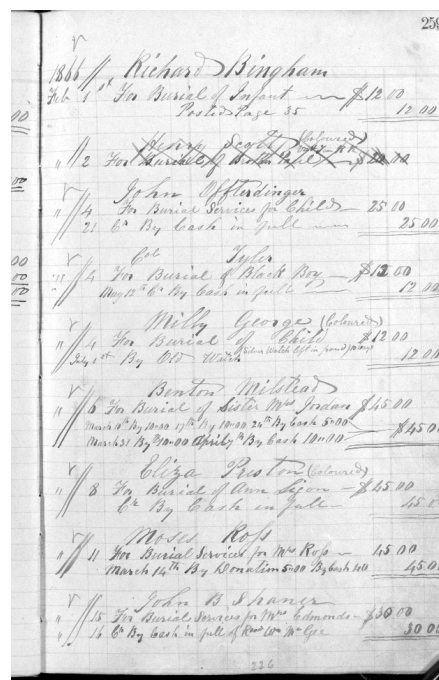 259
1866 Richard Bingham
Feb 1st For Burial of Infant — $12.00
Posted Page 35 12 00
Henry Scott (Coloured)
" 2 For Burial of
John Offterdinger
" 4 For Burial Services for Child — 25 00
21 Cr By Cash in full — 25 00
Col Tyler
" 4 For Burial of Black Boy — $12 00
May 12th Cr By Cash in full 12 00
Milly George (Coloured)
" 4 For Burial of Child $12 00
July 1st By Old Watch (Silver Watch left in pawn) 12 00
Benton Milstead
" 6 For Burial of Sister Mrs Jordan $45 00
March 10th By 10.00 17th By 10.00 24th By Cash 5.00
March 31 By $10.00 April 7th By Cash 10.00 $45 00
Eliza Preston (Coloured)
" 8 For Burial of Ann — $45 00
Cr By Cash in full — 45 0
Moses Ross
" 11 For Burial Services for Mrs Ross — 45 00
March 14th By Donation 5.00 By Cash 40 45 0
John B Shaner
" 15 For Burial Services for Mrs Edmonds — $30 00
" 16 Cr By Cash in full of Wm 30 00
226